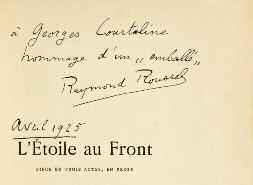 à Georges Courteline
hommage d'un „emballé"
Raymond Roussel
Avril 1925
L'Étoile au Front
PIÈCE EN TROIS ACTES, EN PROSE